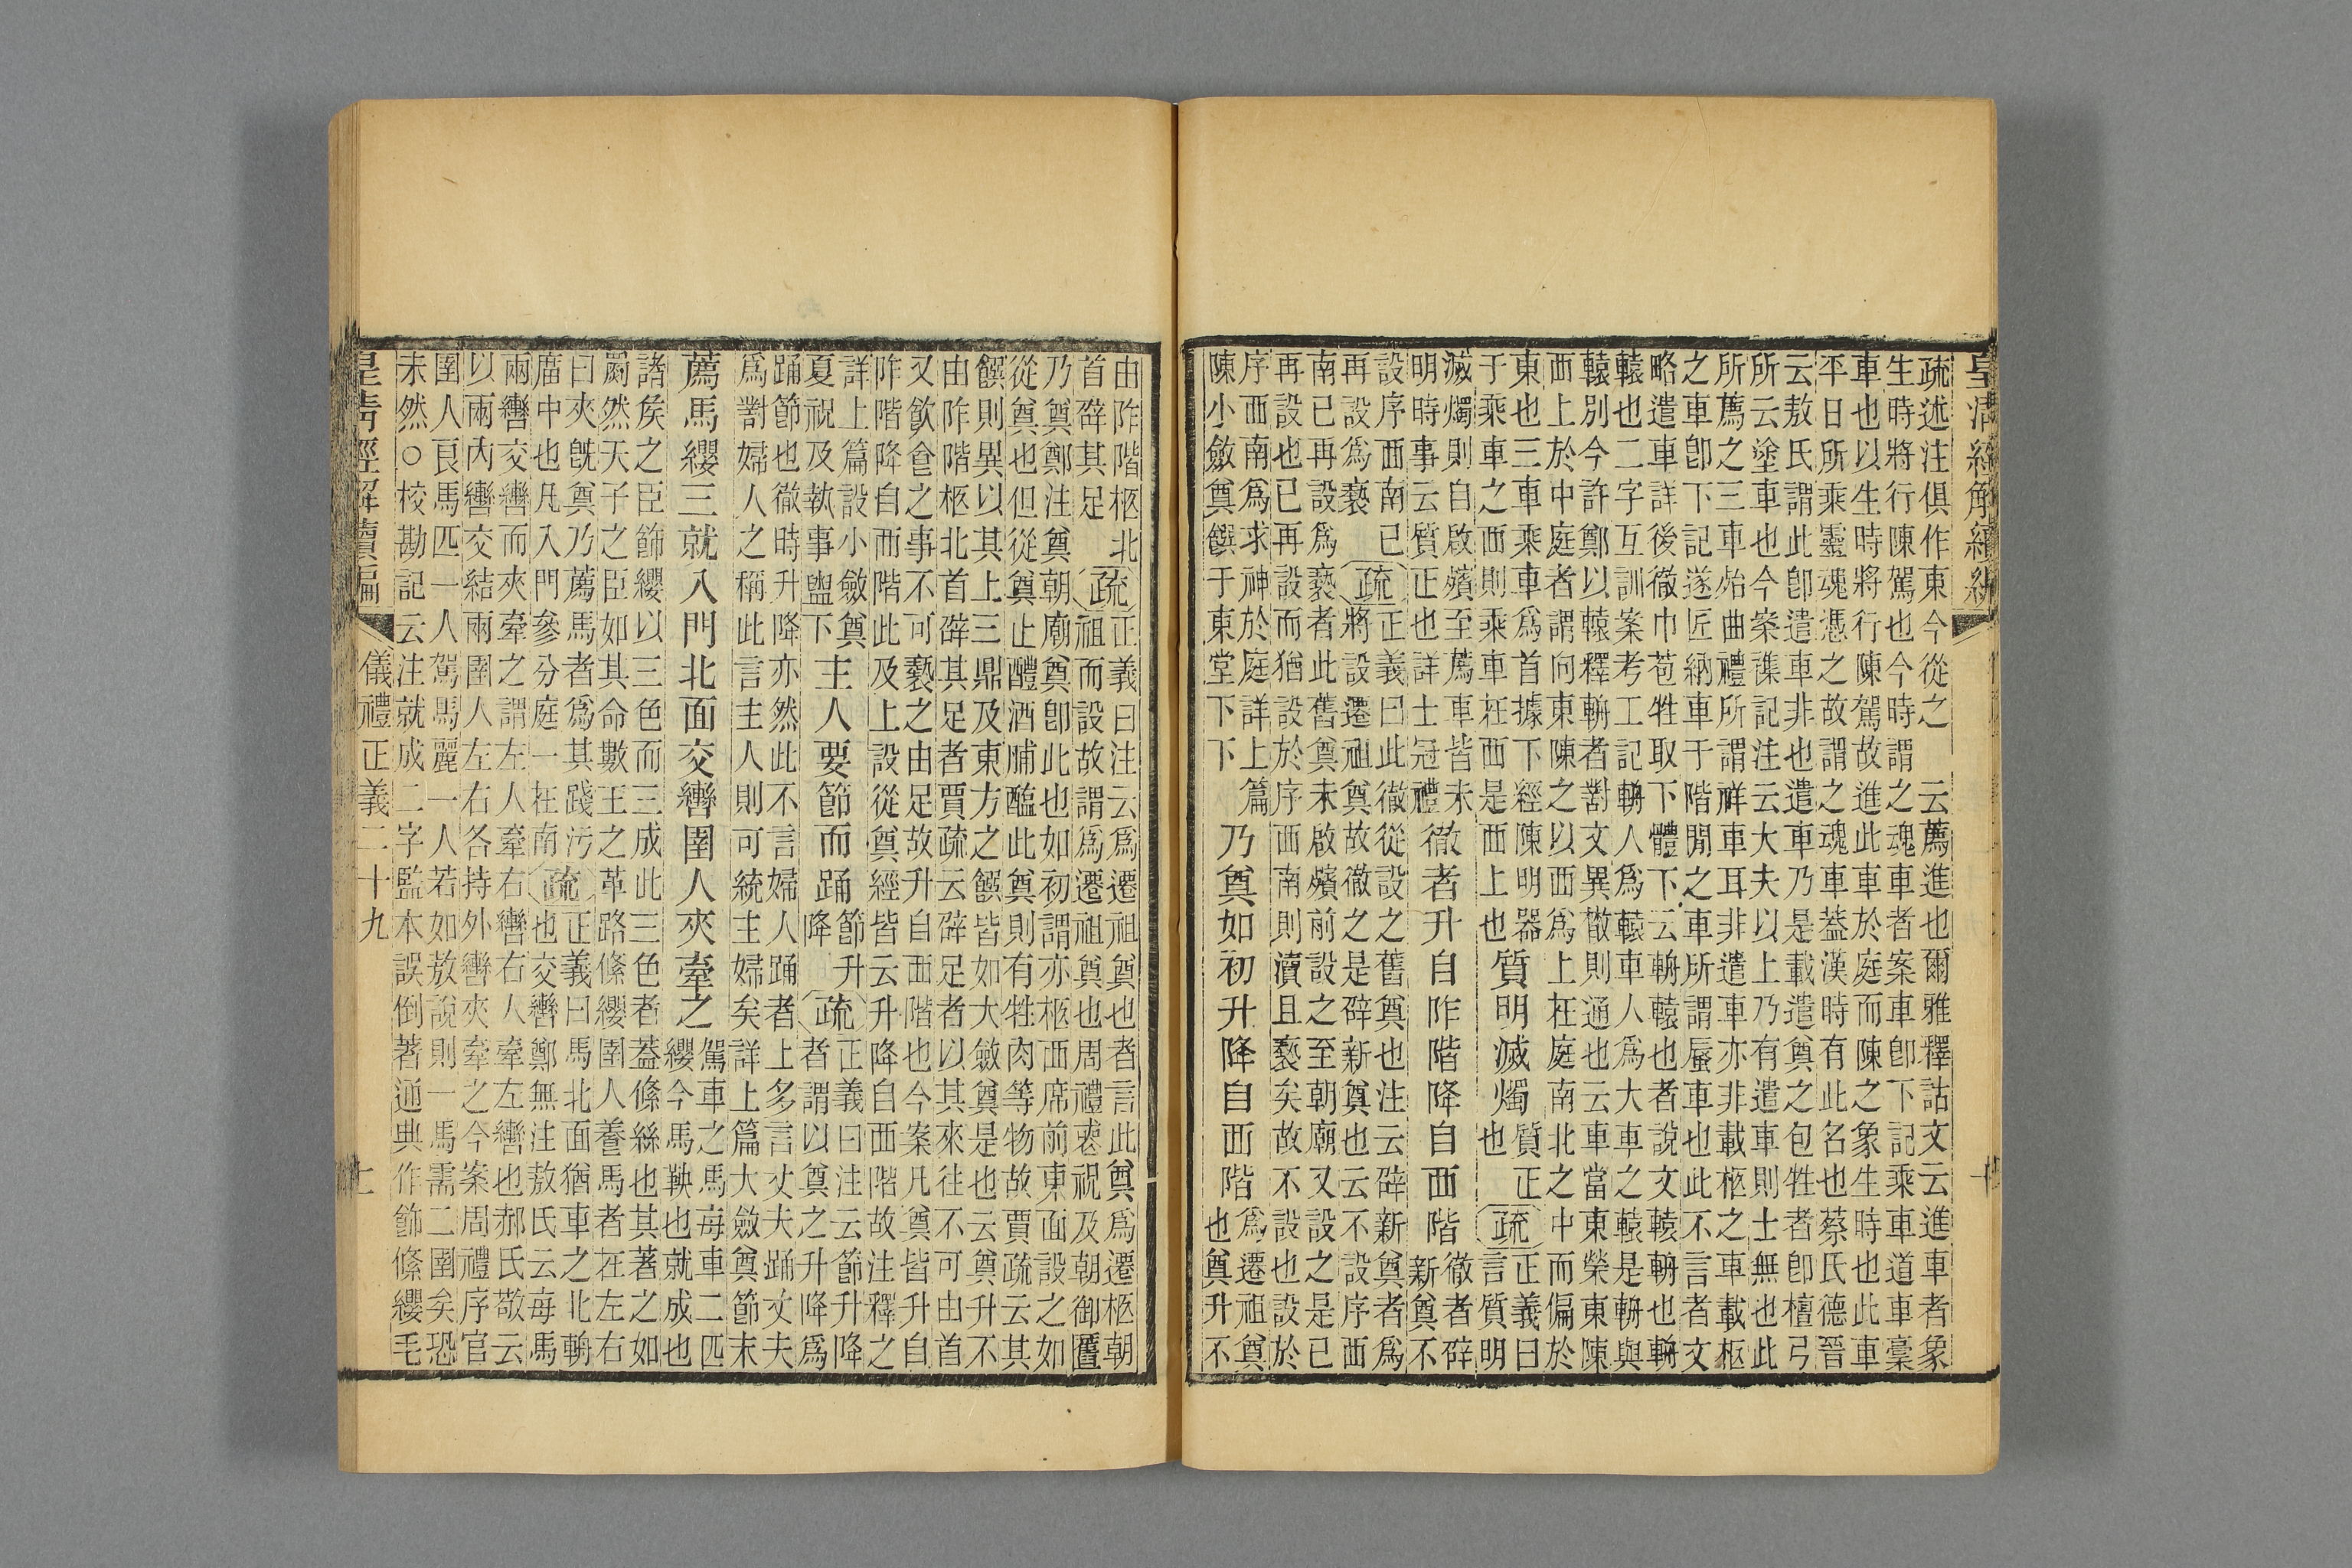 皇清經解續編
疏述注俱作東今從之　云薦進也爾雅釋詁文云進車者象
生時將行陳駕也今時謂之魂車者案車卽下記乘車道車槀
車也以生時將行陳駕故進此車於庭而陳之象生時也此車
平日所乘靈魂憑之故謂之魂車葢漢時有此名也蔡氏德晉
云敖氏謂此卽遣車非也遣車乃是載遣奠之包牲者卽檀弓
所云塗車也今案襍記注云大夫以上乃有遣車則士無也此
所薦之三車始曲禮所謂祥車耳非遣車亦非載柩之車載柩
之車卽下記遂匠納車于階閒之車所謂蜃車也此不言者文
略遣車詳後徹巾苞牲取下體下云輈轅也者說文轅輈也輈
轅也二字互訓案考工記輈人爲轅車人爲大車之轅是輈與
轅別今許鄭以轅釋輈者對文異散則通也云車當東榮東陳
西上於中庭者謂向東陳之以西爲上在庭南北之中而偏於
東也三車乘車爲首據下經陳明器　質明滅燭　質正　疏　正義曰
于乘車之西則乘車在西是西上也　也　言質明
滅燭則自啟殯至薦車皆未　徹者升自阼階降自西階　徹者辟
明時事云質正也詳士冠禮　新奠不
設序西南已　疏　正義曰此徹從設之舊奠也注云辟新奠者爲
再設爲褻　將設遷祖奠故徹之是辟新奠也云不設序西
南已再設爲褻者此舊奠未啟殯前設之至朝廟又設之是已
再設也已再設而猶設於序西南則瀆且褻矣故不設也設於
序西南爲求神於庭詳上篇　乃奠如初升降自西階　爲遷祖奠
陳小斂奠饌于東堂下下　也奠升不
由阼階柩北　疏　正義曰注云爲遷祖奠也者言此奠爲遷柩朝
首辟其足　祖而設故謂爲遷祖奠也周禮喪祝及朝御匶
乃奠鄭注奠朝廟奠卽此也如初謂亦柩西席前東面設之如
從奠也但從奠止醴酒脯醢此奠則有牲肉等物故賈疏云其
饌則異以其上三鼎及東方之饌皆如大斂奠是也云奠升不
由阼階柩北首辟其足者賈疏云辟足者以其來往不可由首
又飮食之事不可褻之由足故升自西階也今案凡奠皆升自
阼階降自西階此及上設從奠經皆云升降自西階故注釋之
詳上篇設小斂奠　主人要節而踊　節升　疏　正義曰注云節升降
夏祝及執事盥下　降　者謂以奠之升降爲
踊節也徹時升降亦然此不言婦人踊者上多言丈夫踊丈夫
爲對婦人之稱此言主人則可統主婦矣詳上篇大斂奠節末
薦馬纓三就入門北面交轡圉人夾牽之　駕車之馬每車二匹
纓今馬鞅也就成也
諸矦之臣飾纓以三色而三成此三色者葢絛絲也其著之如
罽然天子之臣如其命數王之革路絛纓圉人養馬者在左右
曰夾旣奠乃薦馬者爲其踐汚　疏　正義曰馬北面猶車之北輈
廟中也凡入門參分庭一在南　也交轡鄭無注敖氏云每馬
兩轡交轡而夾牽之謂左人牽右轡右人牽左轡也郝氏敬云
以兩內轡交結兩圉人左右各持外轡夾牽之今案周禮序官
圉人良馬匹一人駑馬麗一人若如敖說則一馬需二圉矣恐
未然○校勘記云注就成二字監本誤倒著通典作飾絛纓毛
皇清經解續編　儀禮正義二十九　七